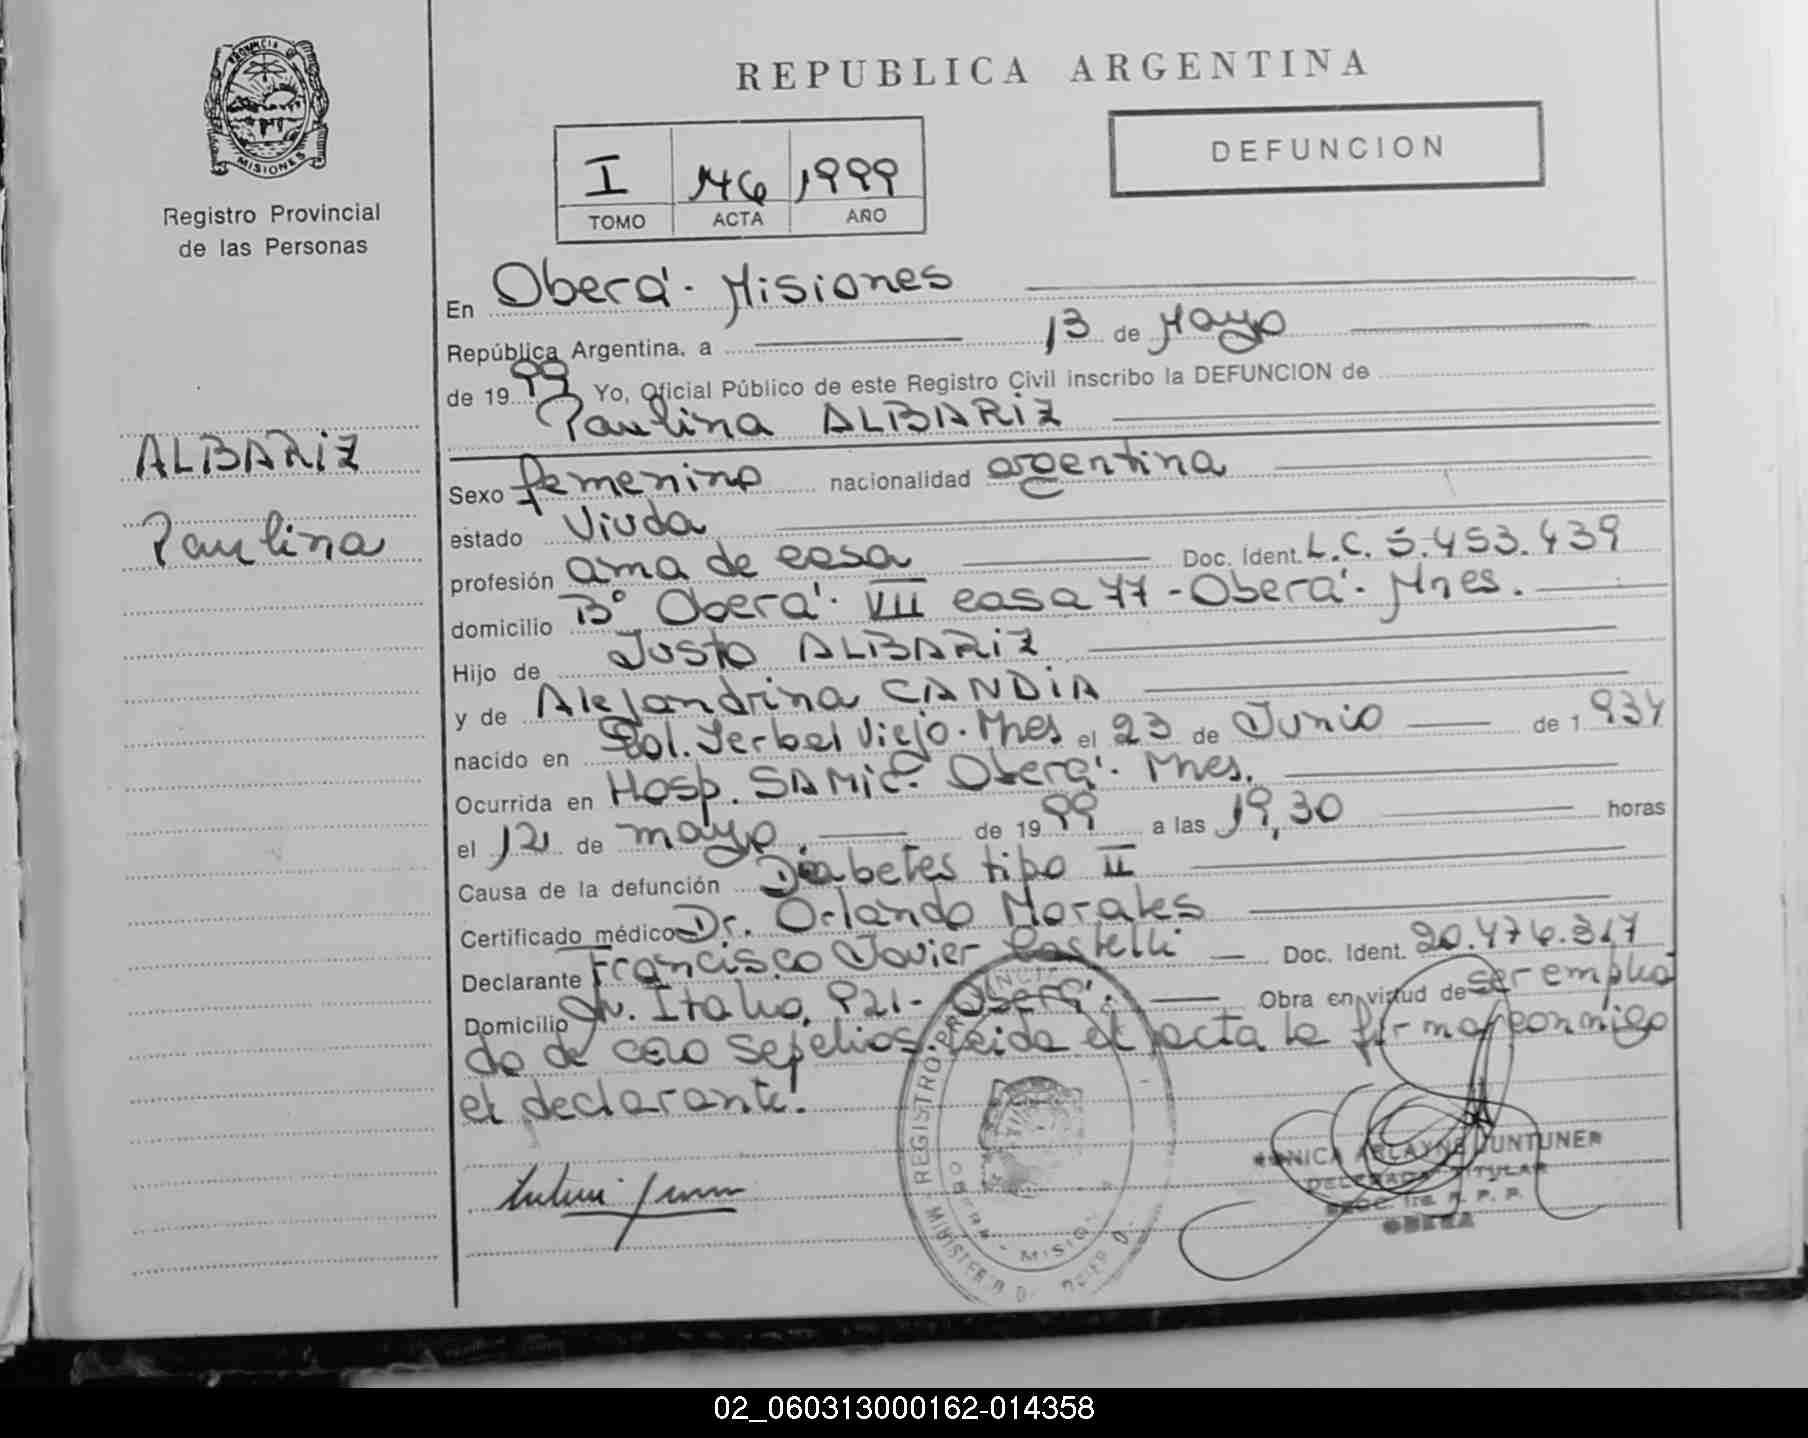 PROVINCIA D
MISIONES
Registro Provincial
de las Personas
ALBARIZ
Paulina
REPUBLICA ARGENTINA
DEFUNCION
I 146 1999
TOMO ACTA AÑO
En Oberá. Misiones
República Argentina, a 13 de Mayo
de 1999 Yo, Oficial Público de este Registro Civil inscribo la DEFUNCION de
Paulina ALBARIZ
Sexo femenino nacionalidad argentina
estado Viuda
profesión ama de casa Doc. Ident. L.C. 5.453.439
domicilio Bº Oberá. VII casa 77 - Oberá. Mnes.
Hijo de Justo ALBARIZ
y de Alejandrina CANDIA
nacido en Col. Yerbal Viejo. Mnes el 23 de Junio de 1 934
Ocurrida en Hosp. SAMIC. Oberá. Mnes.
el 12 de mayo de 1999 a las 19,30 horas
Causa de la defunción Diabetes tipo II
Certificado médico Dr. Orlando Morales
Declarante Francisco Javier Castelli Doc. Ident. 20.476.317
Domicilio Av. Italia, 921 - Oberá. Obra en virtud de ser emplea
do de sepelios. Leida el acta la firma conmigo
el declarante.
REGISTRO
OBERA - MISION
MONICA JUNTUNEN
DELEGADA TITULAR
R. P. P.
OBERA
02_060313000162-014358